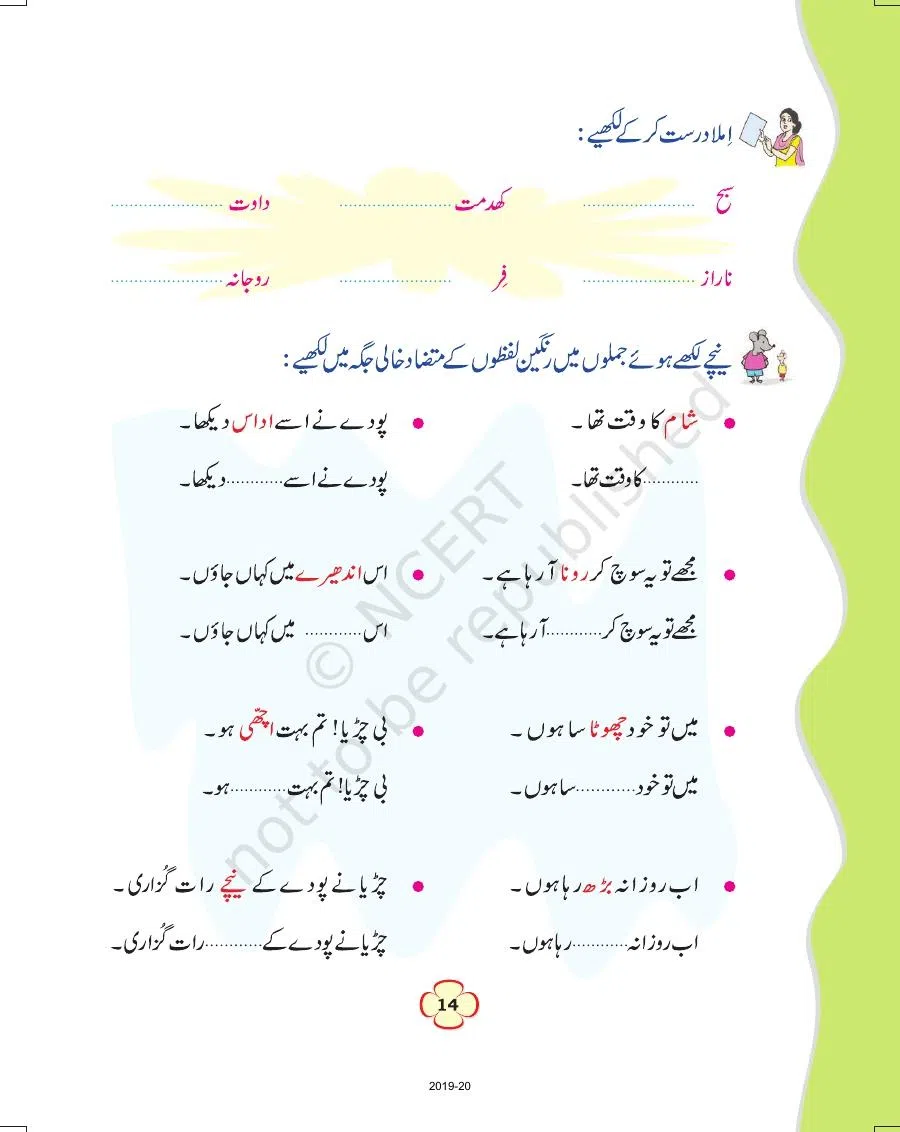 اِملا درست کر کے لکھیے :
سبح ........................ کھدمت ........................ داوت ........................
ناراز ........................ فِر ........................ روجانہ ........................
نیچے لکھے ہوئے جملوں میں رنگین لفظوں کے متضاد خالی جگہ میں لکھیے :
● شام کا وقت تھا ۔
............کا وقت تھا۔
● پودے نے اسے اداس دیکھا۔
پودے نے اسے............دیکھا۔
● مجھے تو یہ سوچ کر رونا آ رہا ہے ۔
مجھے تو یہ سوچ کر............آ رہا ہے۔
● اس اندھیرے میں کہاں جاؤں ۔
اس ............ میں کہاں جاؤں ۔
● میں تو خود چھوٹا سا ہوں ۔
میں تو خود............سا ہوں ۔
● بی چڑیا! تم بہت اچھّی ہو ۔
بی چڑیا! تم بہت............ہو۔
● اب روزانہ بڑھ رہا ہوں ۔
اب روزانہ............رہا ہوں۔
● چڑیا نے پودے کے نیچے رات گُزاری ۔
چڑیا نے پودے کے............رات گُزاری۔
© NCERT
not to be republished
14
2019-20